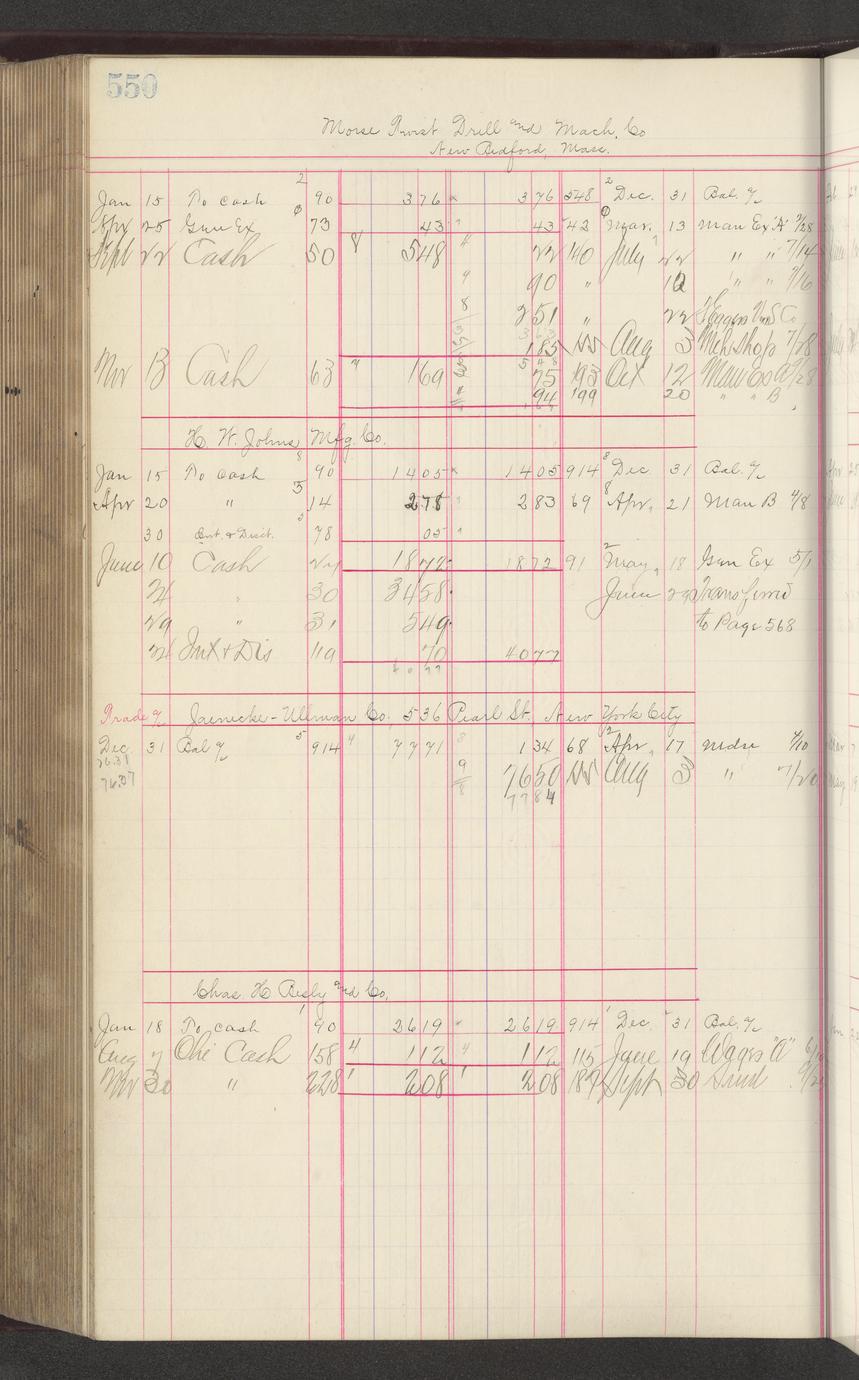 550
Morse Twist Drill and Mach. Co
New Bedford, Mass.
Jan 15 To cash 90 376 376 548 Dec. 31 Bal. %
Apr 25 Gen Ex 73 43 43 42 Mar. 13 Man Ex "A"
Sept 22 Cash 50 8 548 22 140 July 22 " " 7/14
90 " " "
8 251 " 22
185 Aug 3 Mch shop 7/28
Cash 63 169 75 193 Oct 12
94 199 20 " " B
H. W. Johns Mfg. Co.
Jan 15 To cash 90 1405 1405 914 Dec 31 Bal. %
Apr 20 " 14 278 283 69 Apr. 21 Man B 4/8
30 Int. & Disct. 78 05
June 10 Cash 1872 1872 91 May 18 Gen Ex 5/1
24 " 30 3458 June Transferred
29 " 31 549 to Page 568
Int & Dis 119 70 4077
Trade % Jaenecke-Ullman Co. 536 Pearl St. New York City
Dec 31 Bal % 914 7771 134 68 Apr. 17 Mdse 4/10
76.37
7650 Aug 3 " 7/20
7784
Chas. H Besly and Co.
Jan 18 To cash 90 2619 2619 914 Dec. 31 Bal. %
Aug 7 Chi Cash 158 4 112 4 112 115 June 19 Wages "A"
30 " 228 208 208 Sept 30